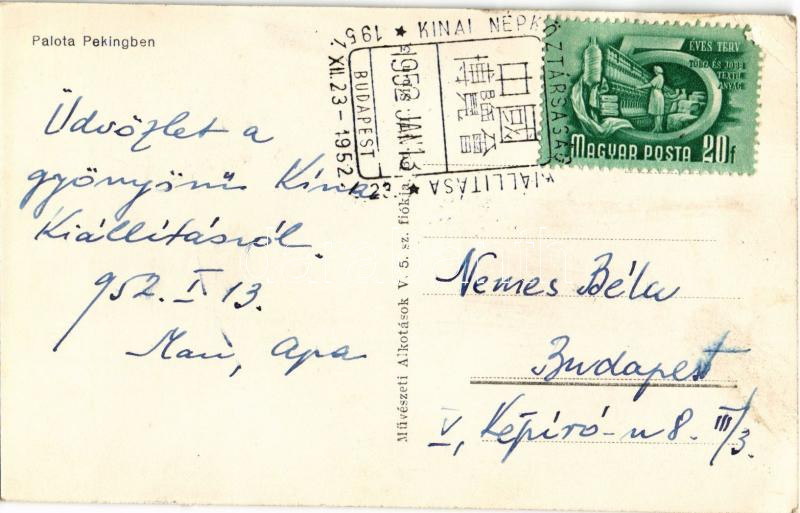 Palota Pekingben
★ KINAI NÉPKÖZTÁRSASÁG KIÁLLITÁSA ★
1951. XII. 23 - 1952. I. 23.
BUDAPEST
1952 JAN 13
中國
博覽會
5 ÉVES TERV
TÖBB ÉS JOBB
TEXTIL
ANYAG
MAGYAR POSTA 20f
Üdvözlet a
gyönyörű Kína
Kiállításról.
952. I. 13.
Apa
Művészeti Alkotások V. 5. sz. fiókja
Nemes Béla
Budapest
V, Képíró-u 8. III/3.